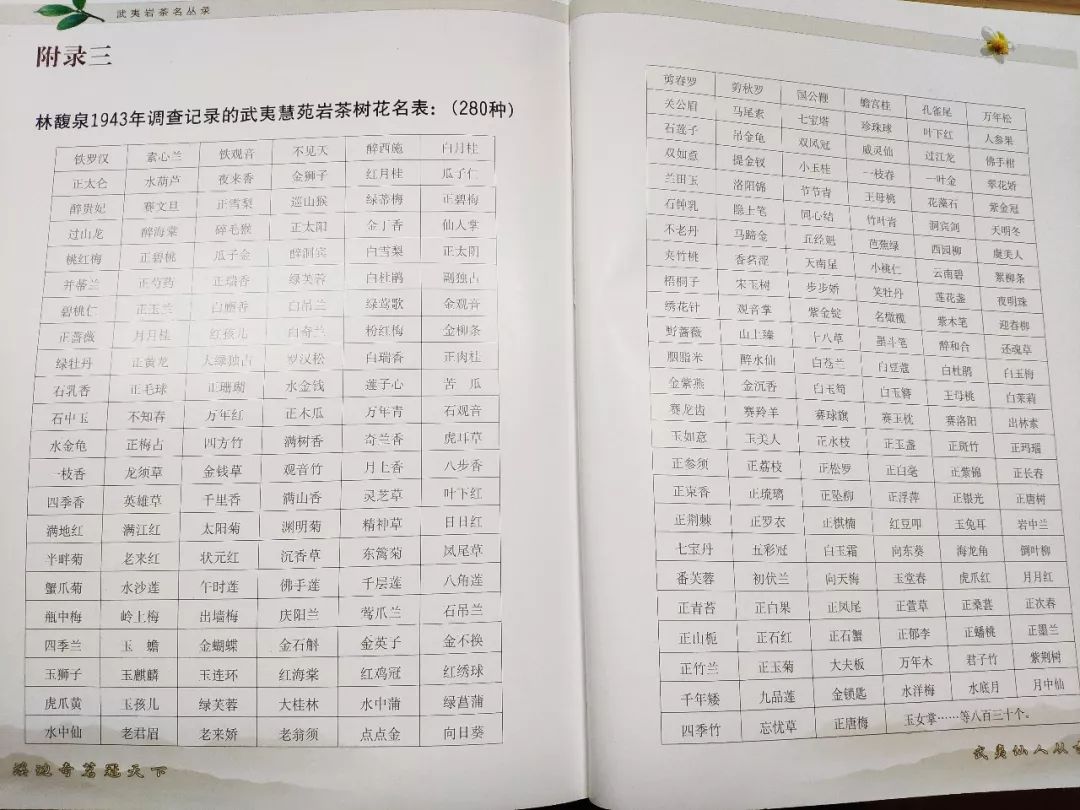 武夷岩茶名丛录
附录三
林馥泉1943年调查记录的武夷慧苑岩茶树花名表：（280种）
铁罗汉 素心兰 铁观音 不见天 醉西施 白月桂
正太仑 水葫芦 夜来香 金狮子 红月桂 瓜子仁
醉贵妃 赛文旦 正雪梨 巡山猴 绿蒂梅 正碧梅
过山龙 醉海棠 碎毛猴 正太阳 金丁香 仙人掌
桃红梅 正碧桃 瓜子金 醉洞宾 白雪梨 正太阴
并蒂兰 正芍药 正瑞香 绿芙蓉 白杜鹃 副独占
碧桃仁 正玉兰 白麝香 白吊兰 绿莺歌 金观音
正蔷薇 月月桂 红孩儿 白奇兰 粉红梅 金柳条
绿牡丹 正黄龙 大绿独占 罗汉松 白瑞香 正肉桂
石乳香 正毛球 正珊瑚 水金钱 莲子心 苦 瓜
石中玉 不知春 万年红 正木瓜 万年青 石观音
水金龟 正梅占 四方竹 满树香 奇兰香 虎耳草
一枝香 龙须草 金钱草 观音竹 月上香 八步香
四季香 英雄草 千里香 满山香 灵芝草 叶下红
满地红 满江红 太阳菊 渊明菊 精神草 日日红
半畔菊 老来红 状元红 沉香草 东篱菊 凤尾草
蟹爪菊 水沙莲 午时莲 佛手莲 千层莲 八角莲
瓶中梅 岭上梅 出墙梅 庆阳兰 莺爪兰 石吊兰
四季兰 玉 蟾 金蝴蝶 金石斛 金英子 金不换
玉狮子 玉麒麟 玉连环 红海棠 红鸡冠 红绣球
虎爪黄 玉孩儿 绿芙蓉 大桂林 水中蒲 绿菖蒲
水中仙 老君眉 老来娇 老翁须 点点金 向日葵
剪春罗 剪秋罗 国公鞭 蟾宫桂 孔雀尾 万年松
关公眉 马尾素 七宝塔 珍珠球 叶下红 人参果
石莲子 吊金龟 双凤冠 威灵仙 过江龙 佛手柑
双如意 提金钗 小玉桂 一枝春 一叶金 翠花娇
兰田玉 洛阳锦 节节青 王母桃 花藻石 紫金冠
石钟乳 隐士笔 同心结 竹叶青 洞宾剑 天明冬
不老丹 马蹄金 五经魁 芭蕉绿 西园柳 虞美人
夹竹桃 香茗涩 天南星 小桃仁 云南碧 絮柳条
梧桐子 宋玉树 步步娇 笑牡丹 莲花盏 夜明珠
绣花针 观音掌 紫金锭 名橄榄 紫木笔 迎春柳
野蔷薇 山上臻 十八草 墨斗笔 醉和合 还魂草
胭脂米 醉水仙 白苍兰 白豆蔻 白杜鹃 白玉梅
金紫燕 金沉香 白玉笋 白玉簪 王母桃 白茉莉
赛龙齿 赛羚羊 赛球旗 赛玉枕 赛洛阳 出林素
玉如意 玉美人 正水枝 正玉盏 正斑竹 正玛瑙
正参须 正荔枝 正松罗 正白毫 正紫锦 正长春
正束香 正琉璃 正坠柳 正浮萍 正银光 正唐树
正荆棘 正罗衣 正棋楠 红豆叩 玉兔耳 岩中兰
七宝丹 五彩冠 白玉霜 向东葵 海龙角 倒叶柳
番芙蓉 初伏兰 向天梅 玉堂春 虎爪红 月月红
正青苔 正白果 正凤尾 正萱草 正桑葚 正次春
正山栀 正石红 正石蟹 正郁李 正蟠桃 正墨兰
正竹兰 正玉菊 大夫板 万年木 君子竹 紫荆树
千年矮 九品莲 金锁匙 水洋梅 水底月 月中仙
四季竹 忘忧草 正唐梅 玉女掌……等八百三十个。
奇茗冠天下
武夷仙人从